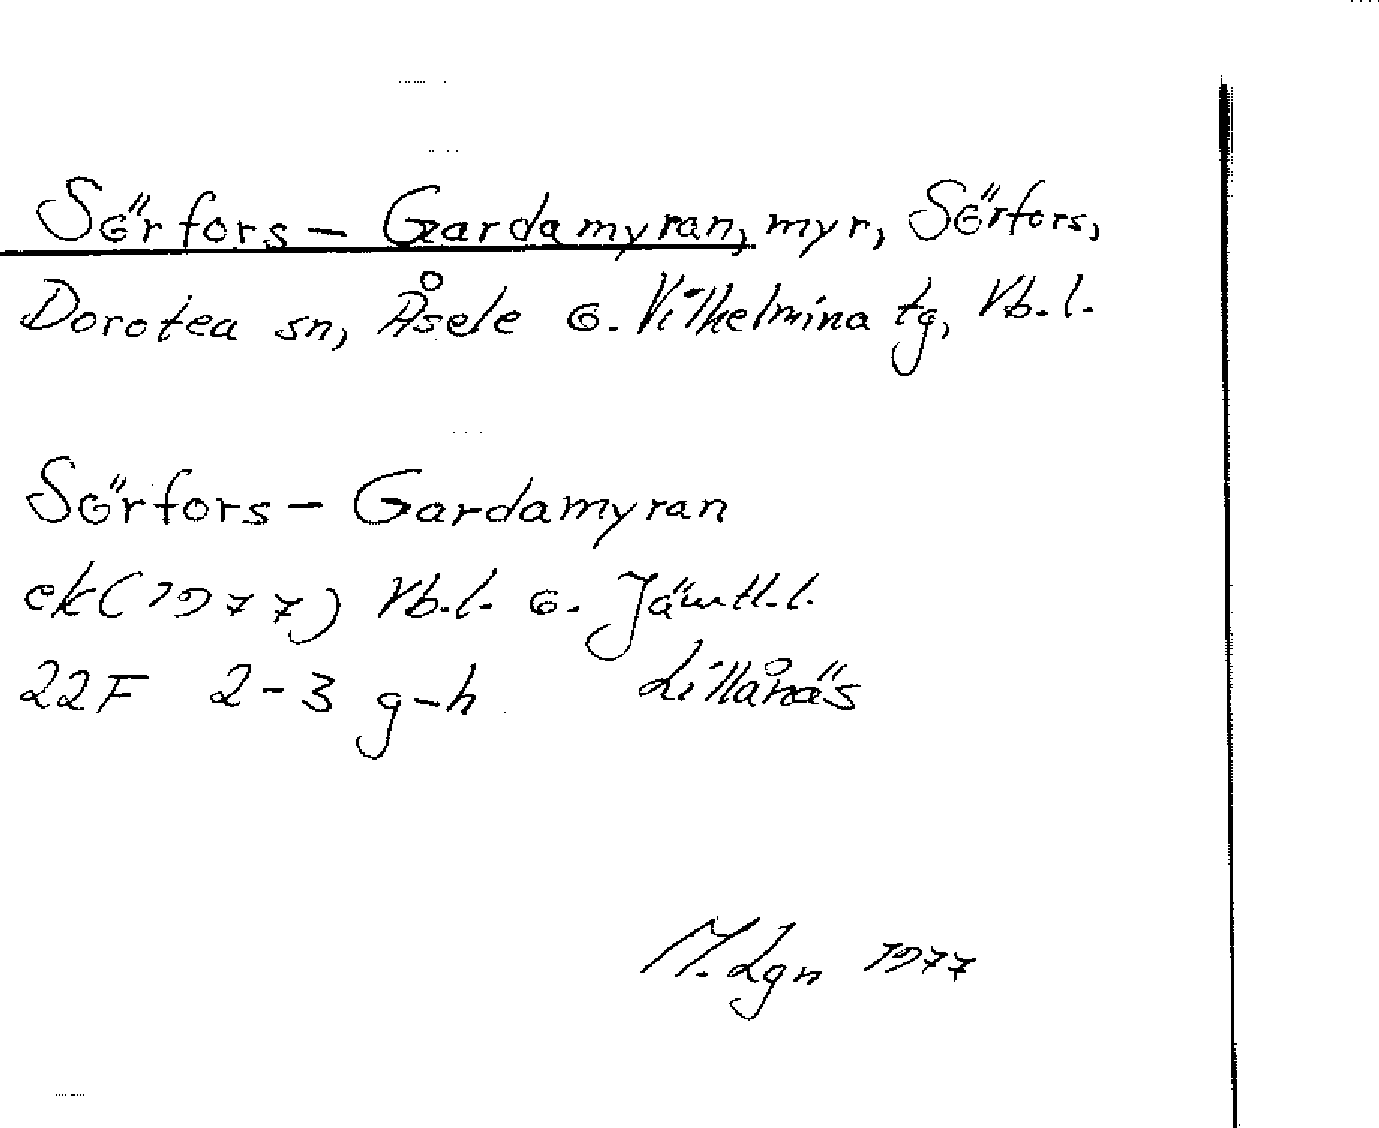 Sörfors - Gardamyran, myr, Sörfors,
Dorotea sn, Åsele o. Vilhelmina tg, Vb. l.
Sörfors - Gardamyran
ek (1977) Vb. l. o. Jämtl. l.
22F 2-3 g-h Lillånäs
M. Lgn 1977